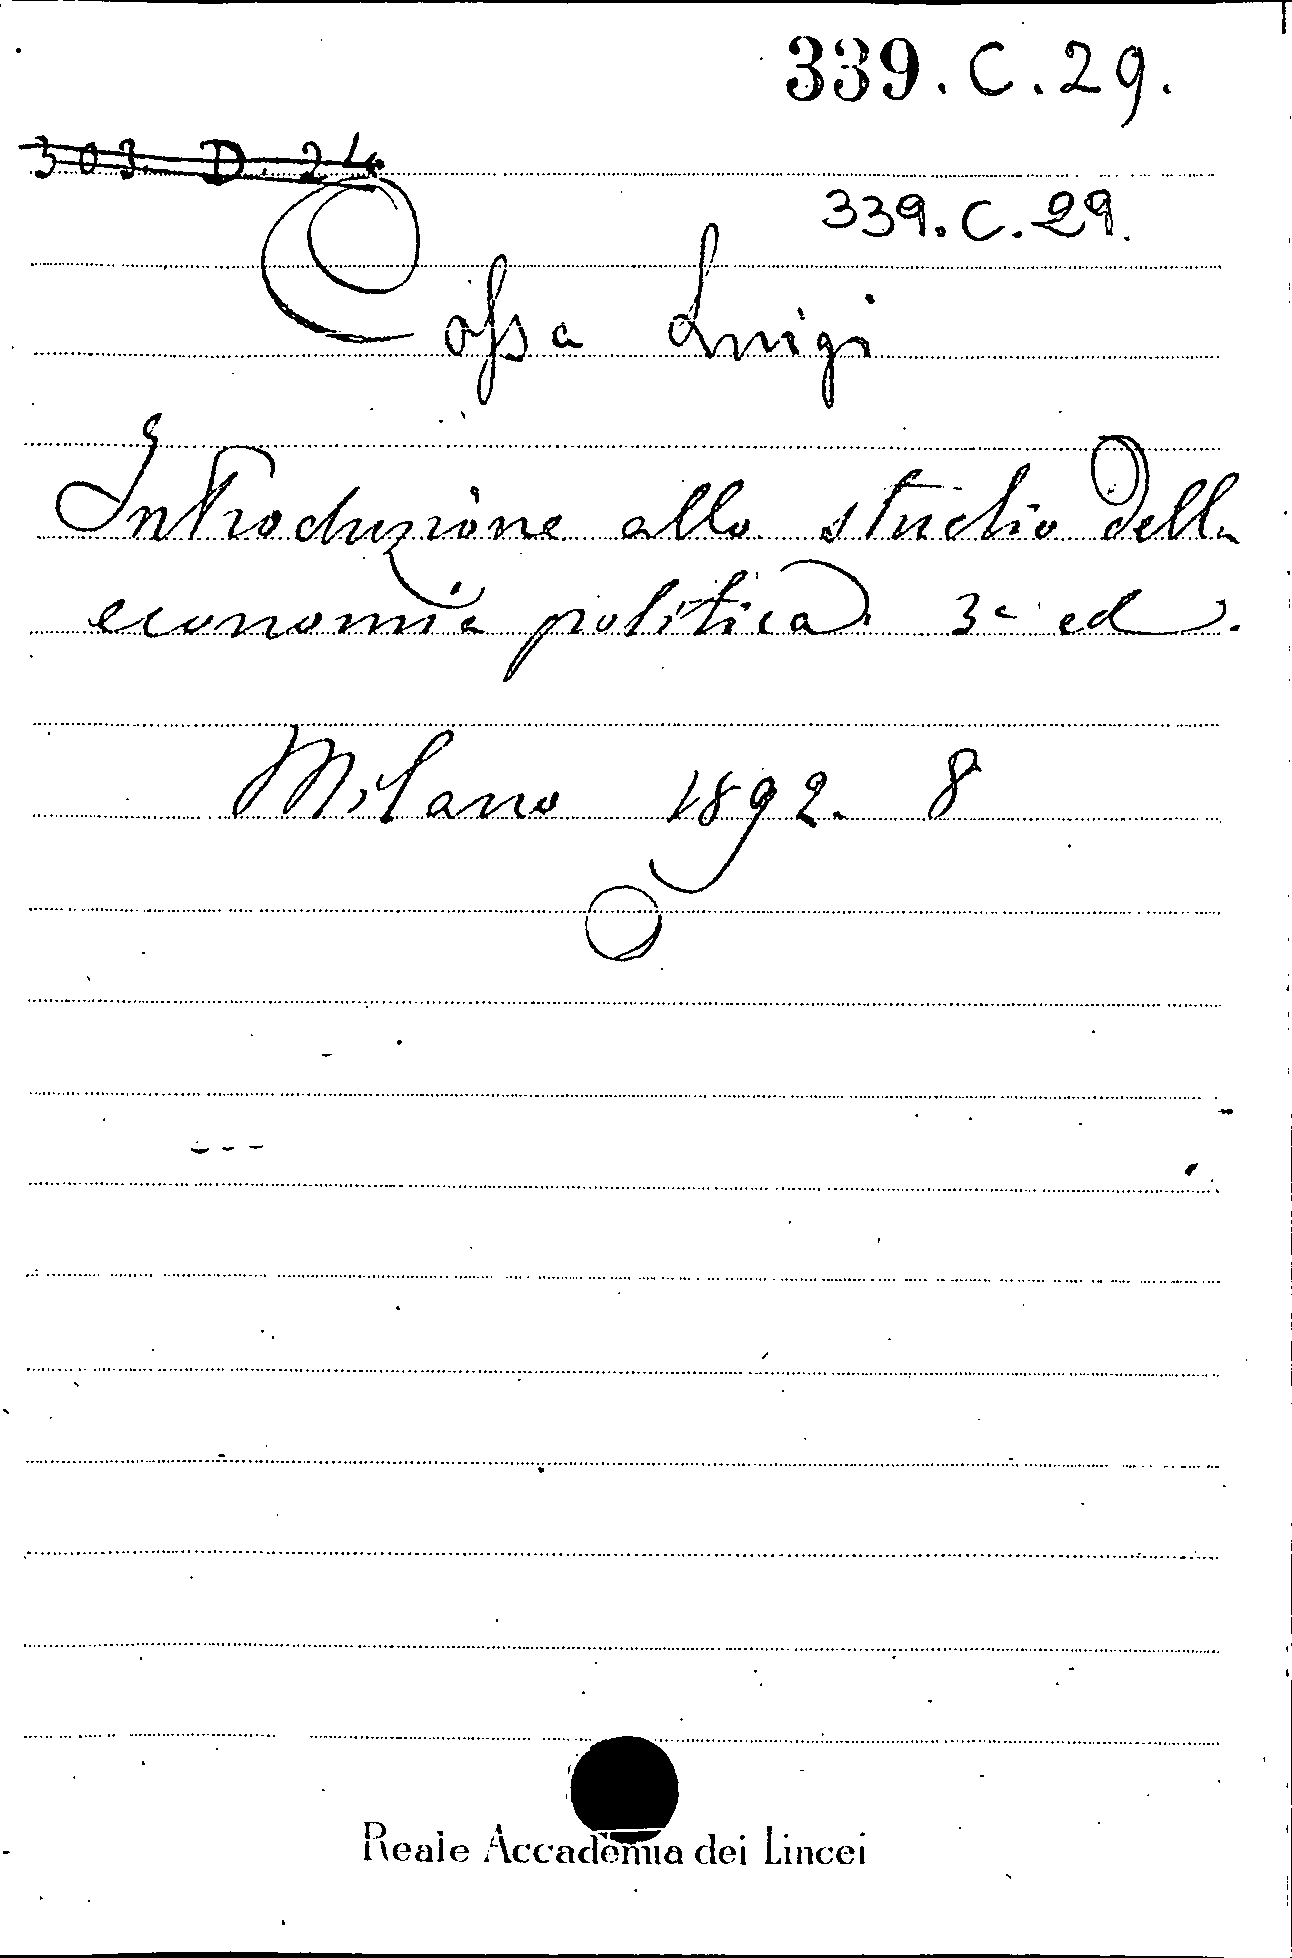 339.C.29.
303. D. 24
339.C.29.
Cossa Luigi
Introduzione allo studio della
economia politica. 3ª ed.
Milano 1892. 8
Reale Accademia dei Lincei